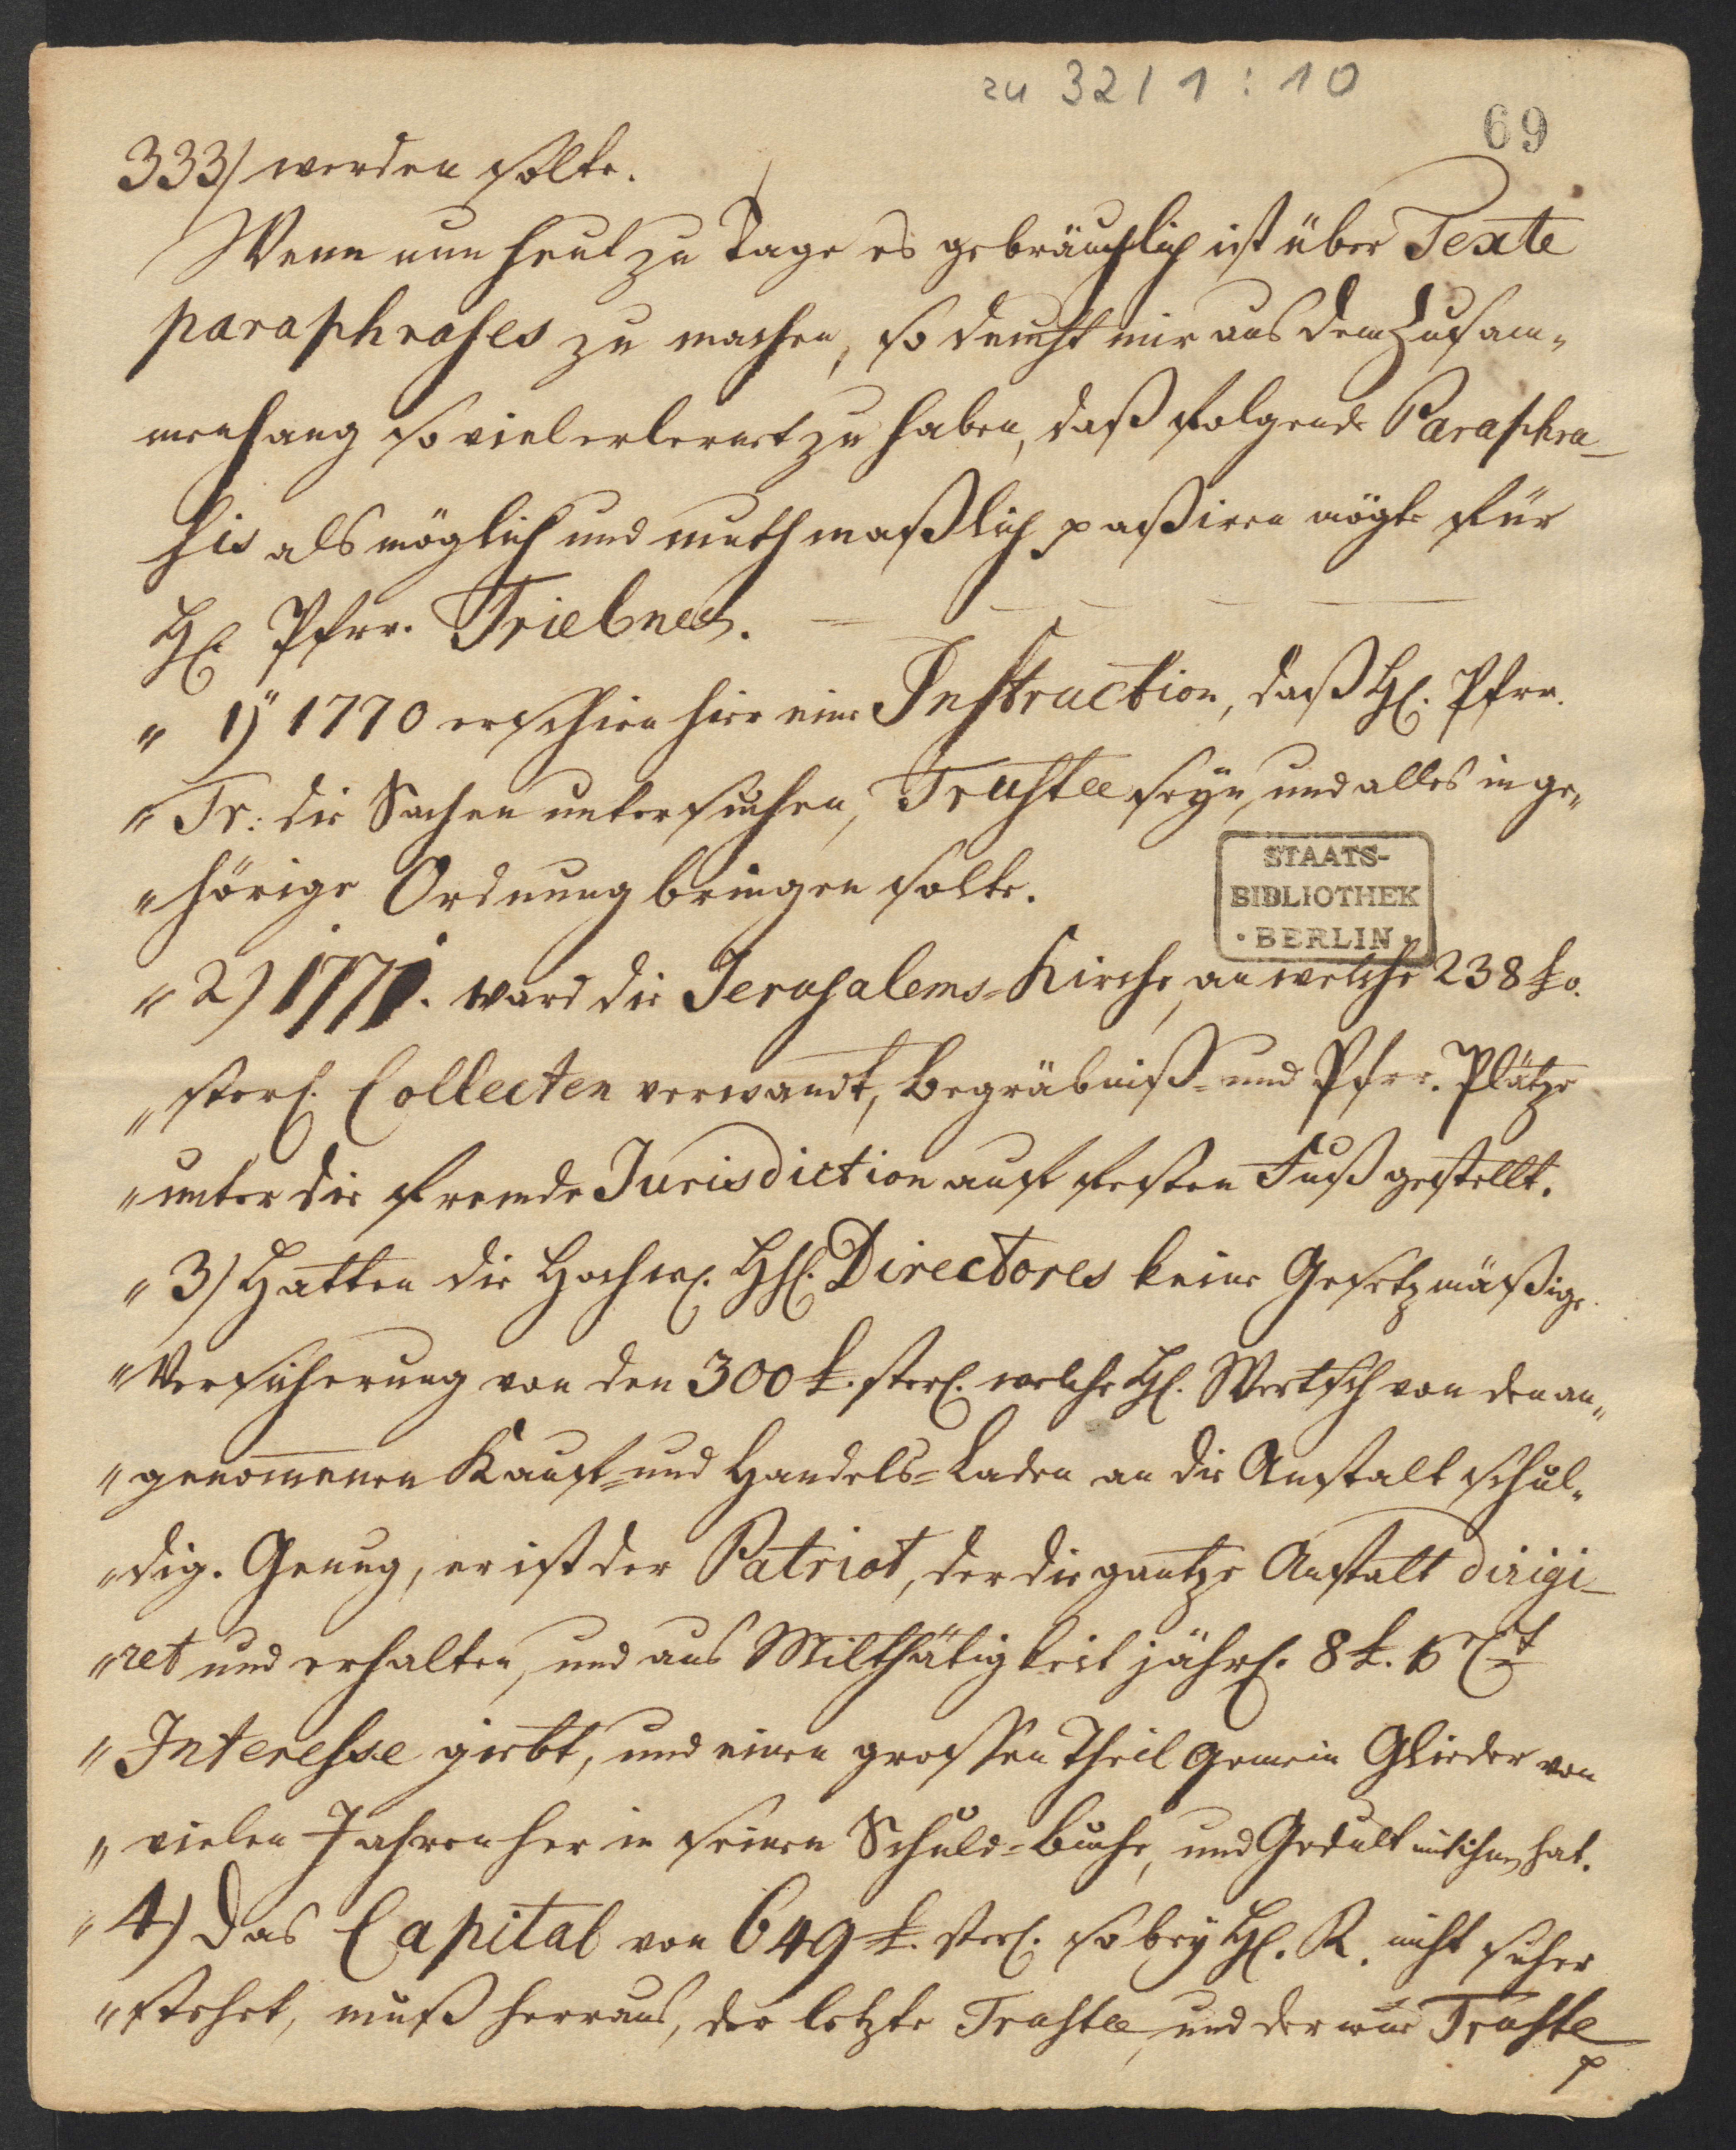 zu 32/1:10
69
333/ werden solte.
Wenn nun heut zu Tage es gebräuchlich ist über Texte
paraphrases zu machen, so deucht mir aus dem Zusam-
menhang so viel erlernet zu haben, daß folgende Paraphra-
sis als möglich und muthmaßlich paßiren mögte für
H. Pfrr. Triebner.
" 1) 1770 erschien hier eine Instruction, daß H. Pfrr.
" Tr: die Sachen untersuchen, Trustee seyn, und alles in ge-
" hörige Ordnung bringen solte.
" 2) 1771. ward die Jerusalems-Kirche, an welche 238 £.
" sterl. Collecten verwandt, Begräbniß- und Pfrr. Plätze
" unter die fremde Jurisdiction auf festen Fuß gestellt.
STAATS-
BIBLIOTHEK
BERLIN
" 3) Hatten die Hochw. HH. Directores keine Gesetzmäßige
" Versicherung von den 300 £. sterl. welche H. Wertsch von den an-
" genommenen Kauf- und Handels-Laden an die Anstalt schul-
" dig. Genug, er ist der Patriot, der die gantze Anstalt dirigi-
" ret und erhalten, und aus Milthätigkeit jährl. 8 £. p Ct
" Interesse giebt, und einen grossen Theil Gemein Glieder von
" vielen Jahren her in seinen Schuld-Buche, und Gedult mit ihnen hat.
" 4) Das Capital von 649 £. sterl. so bey H. R. nicht sicher
" stehet, muß herraus, der letzte Trustee, und der neue Truste
p